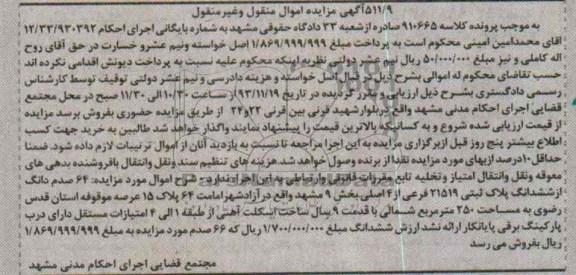 511/9آگهی مزایده اموال منقول وغیرمنقول
به موجب پرونده کلاسه 910665 صادره ازشعبه 33 دادگاه حقوقی مشهد به شماره بایگانی اجرای احکام 12/33/930392
آقای محمدامین امینی محکوم است به پرداخت مبلغ 1/869/999/999 اصل خواسته ونیم عشرو خسارت در حق آقای روح
اله کاملی و نیز مبلغ 50/000/000 ریال نیم عشر دولتی نظربه اینکه محکوم علیه نسبت به پرداخت دیونش اقدامی نکرده اند
حسب تقاضای محکوم له اموالی بشرح ذیل در قبال اصل خواسته و هزینه دادرسی و نیم عشر دولتی توقیف توسط کارشناس
رسمی دادگستری بشرح ذیل ارزیابی و مقرر گردیده در تاریخ 93/11/19 از ساعت 10/30 الی 11/30 صبح در محل مجتمع
قضایی اجرای احکام مدنی مشهد واقع دربلوارشهید قرنی بین قرنی 22و24 از طریق مزایده حضوری بفروش برسد مزایده
از قیمت ارزیابی شده شروع و به کسانیکه بالاترین قیمت را پیشنهاد نمایند واگذار خواهد شد طالبین به خرید جهت کسب
اطلاع بیشتر پنج روز قبل ازبرگزاری مزایده به این اجرا مراجعه تا نسبت به بازدید آنان از اموال ترتیبات لازم داده شود. ضمنا
حداقل 10درصد ازبهای مورد مزایده نقدا از برنده وصول خواهد شد.هزینه های تنظیم سند ونقل وانتقال بافروشنده بدهی های
معوقه ونقل وانتقال امتیاز و تخلیه تابع مقررات قانونی وارتباطی به این اجرا ندارد- شرح اموال مورد مزایده: 64 صدم دانگ
ازششدانگ پلاک ثبتی 21519 فرعی از4 اصلی بخش 9 مشهد واقع در آزادشهرامامت 64 پلاک 15 عرصه موقوفه استان قدس
رضوی به مساحت 250 مترمربع شمالی با قدمت 9 سال ساخت اسکلت آهنی از طبقه 1 الی 4 امتیازات مستقل دارای درب
پارکینگ برقی پایانکار ارائه نشد ارزش ششدانگ مبلغ 1/700/000/000 ریال که 66 صدم مورد مزایده به مبلغ 1/869/999/999
ریال بفروش می رسد
مجتمع قضایی اجرای احکام مدنی مشهد